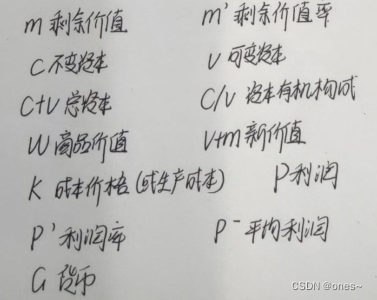 m 剩余价值 m' 剩余价值率
C 不变资本 V 可变资本
C+V 总资本 C/V 资本有机构成
W 商品价值 V+m 新价值
K 成本价格(或生产成本) P 利润
P' 利润率 P⁻ 平均利润
G 货币
CSDN @ones~